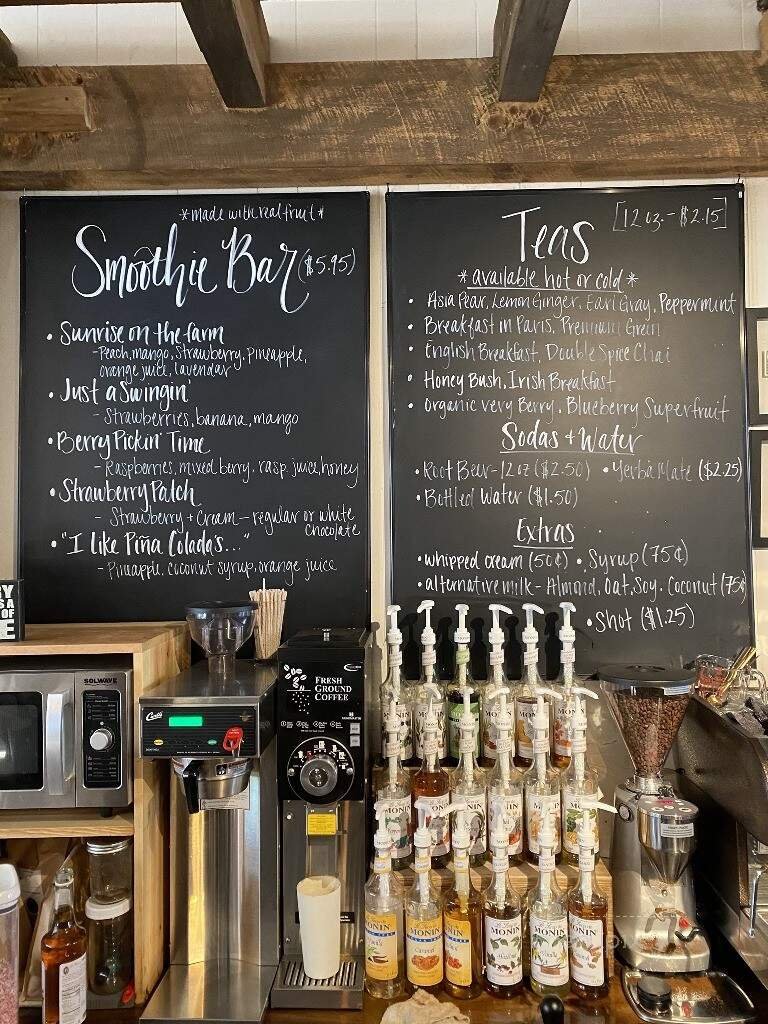 *made with real fruit*
Smoothie Bar ($5.95)
• Sunrise on the farm
- Peach, mango, Strawberry, Pineapple,
orange juice, lavendar
• Just a Swingin'
- Strawberries, banana, mango
• Berry Pickin' Time
- Raspberries, mixed berry, rasp. juice, honey
• Strawberry Patch
- Strawberry + Cream - regular or white
chocolate
• "I Like Piña Colada's..."
- Pineapple, coconut syrup, orange juice
[12 oz. - $2.15]
Teas
*available hot or cold*
• Asia Pear, Lemon Ginger, Earl Gray, Peppermint
• Breakfast in Paris, Premium Green
• English Breakfast, Double Spice Chai
• Honey Bush, Irish Breakfast
• Organic Very Berry, Blueberry Superfruit
Sodas + Water
• Root Beer - 12 oz ($2.50) • Yerba Mate ($2.25)
• Bottled Water ($1.50)
Extras
• whipped cream (50¢) • Syrup (75¢)
• alternative milk - Almond, Oat, Soy, Coconut (75¢)
• Shot ($1.25)
SOLWAVE
Curtis
FRESH
GROUND
COFFEE
MONIN
MONIN
MONIN
MONIN
MONIN
MONIN
MONIN
MONIN
MONIN
MONIN
MONIN
MONIN